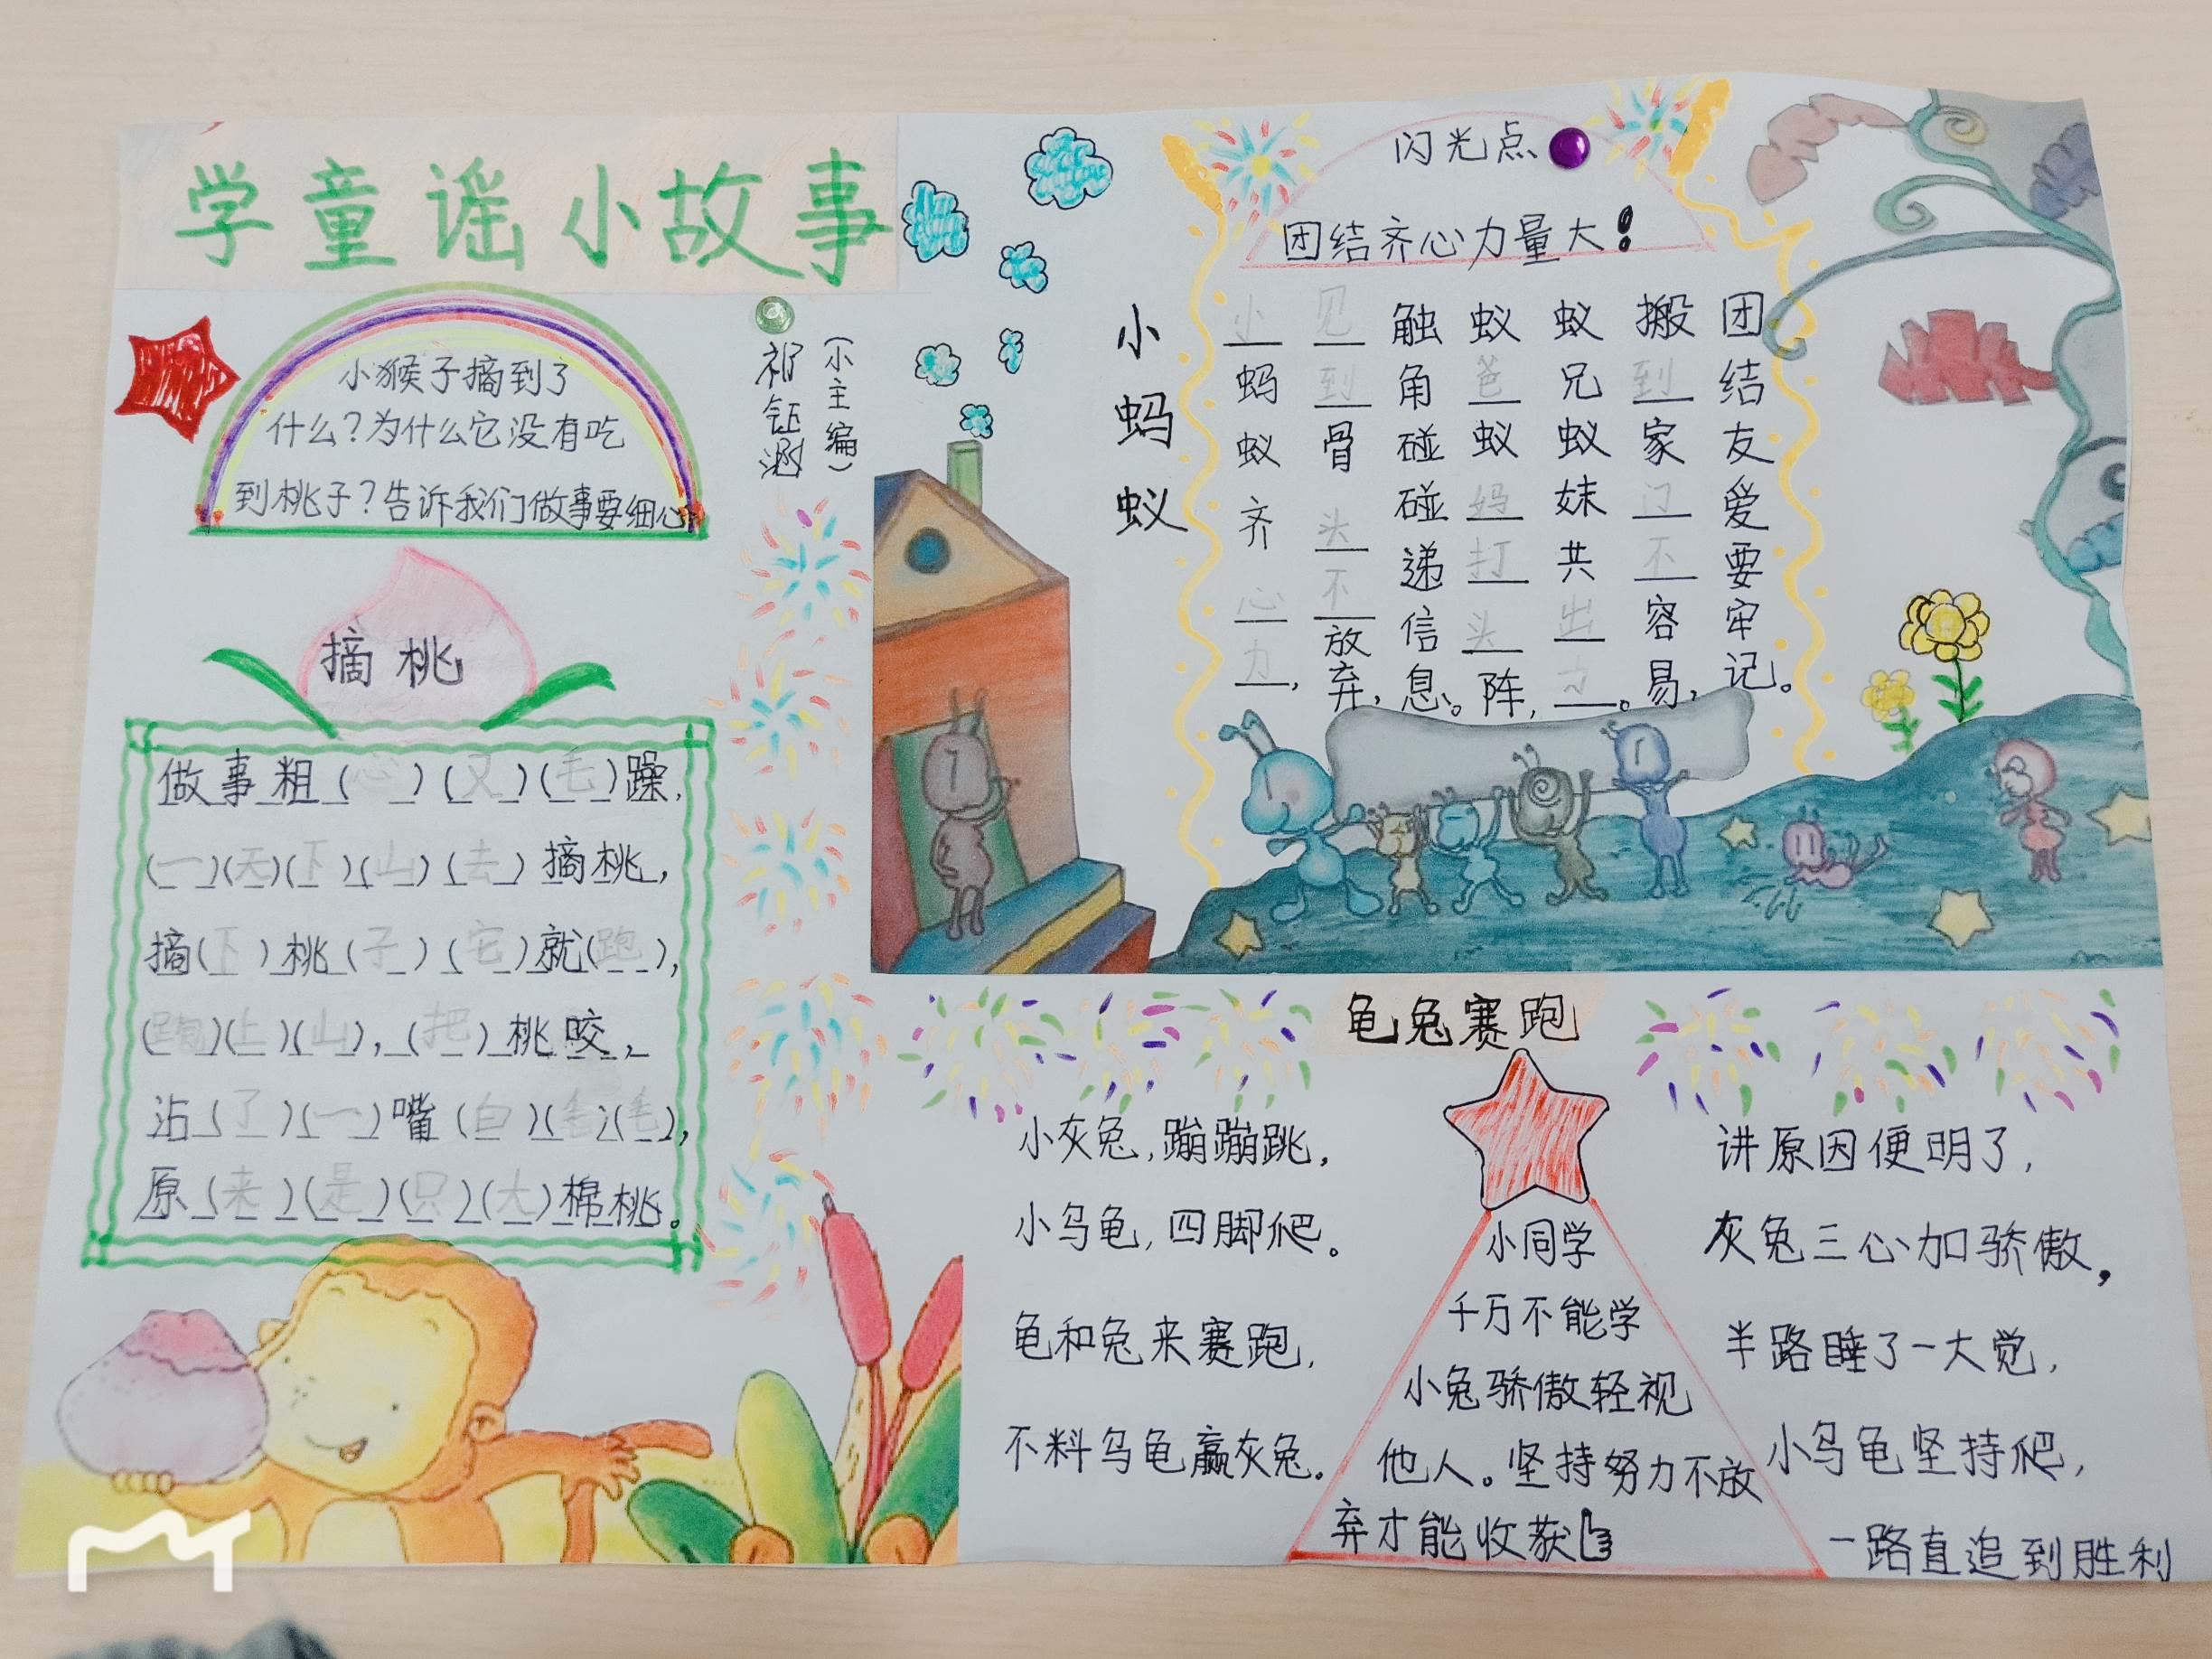 学童谣小故事
小猴子摘到了
什么？为什么它没有吃
到桃子？告诉我们做事要细心
(小主编)
祁钰
摘桃
做事粗(心)(又)(毛)躁,
(一)(天)(下)(山)(去)摘桃,
摘(下)桃(子)(它)就(跑),
(跑)(上)(山),(把)桃咬,
沾(了)(一)嘴(白)(毛)(毛),
原(来)(是)(只)(大)棉桃。
闪光点
团结齐心力量大!
小蚂蚁
小蚂蚁齐心力,
见到骨头不放弃,
触角碰碰递信息。
蚁爸蚁妈打头阵,
蚁兄蚁妹共出力。
搬到家门不容易,
团结友爱要牢记。
龟兔赛跑
小灰兔,蹦蹦跳,
小乌龟,四脚爬。
龟和兔来赛跑,
不料乌龟赢灰兔。
小同学
千万不能学
小兔骄傲轻视
他人。坚持努力不放
弃才能收获
讲原因便明了,
灰兔三心加骄傲,
半路睡了一大觉,
小乌龟坚持爬,
一路直追到胜利